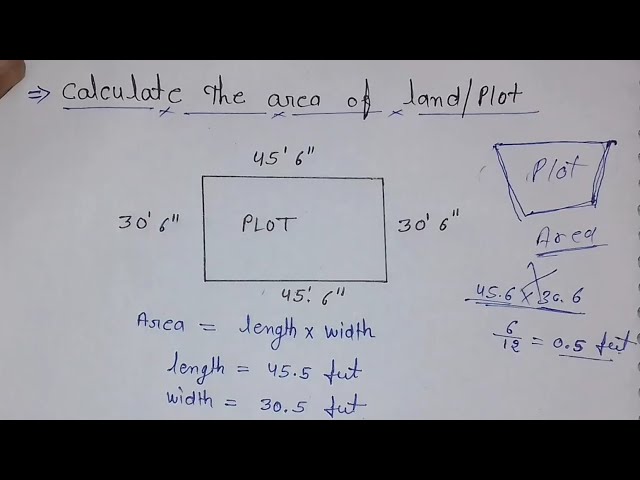 ⇒ Calculate the area of land/Plot
45' 6"
30' 6"
PLOT
30' 6"
45' 6"
Plot
Area
45.6 x 30.6
6/12 = 0.5 feet
Area = length x width
length = 45.5 feet
width = 30.5 feet